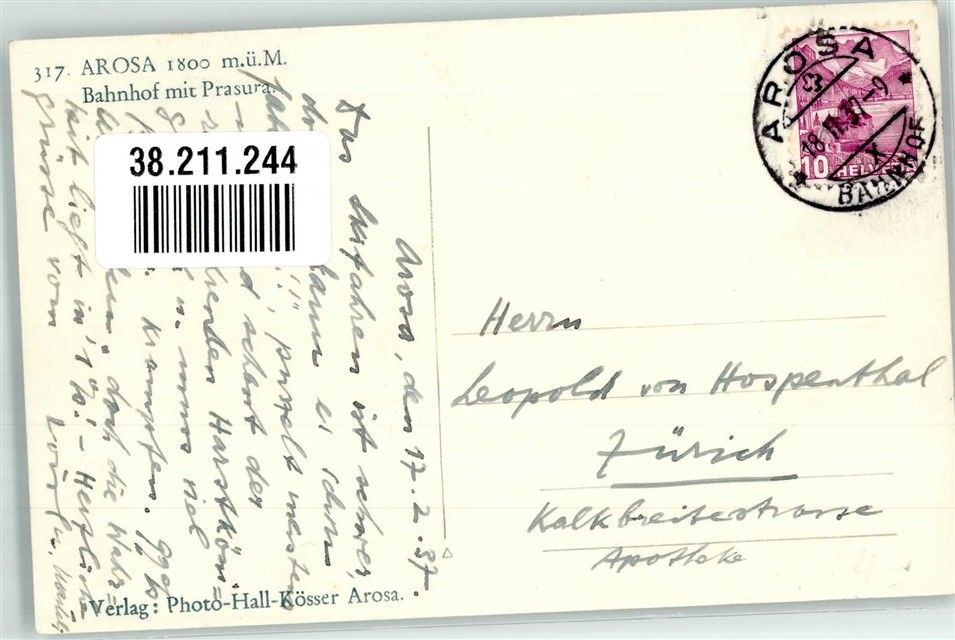 317. AROSA 1800 m.ü.M.
Bahnhof mit Prasura.
38.211.244
AROSA
18.II.37-9
X
BAHNHOF
10 HELVETIA
Arosa, den 17.2.37.
Das Skifahren ist schwer,
kann es schon
purzelt meistens
d schont der
enden Harstköni=
n. muss viel
Krampfen.
doch die Wahr=
heit liegt in
Herzliche
Grüsse vom
Herrn
Leopold von Hospenthal
Zürich
Kalkbreitestrasse
Apotheke
Verlag: Photo-Hall-Kösser Arosa.